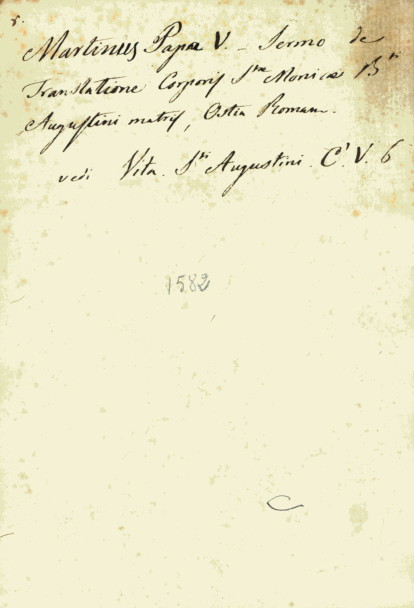 Martinus Papa V. _ Sermo de
Translatione Corporis Stae Monicae Bti
Augustini matris, Ostia Romam.
vedi Vita. Sti Augustini. C. V. 6
1582